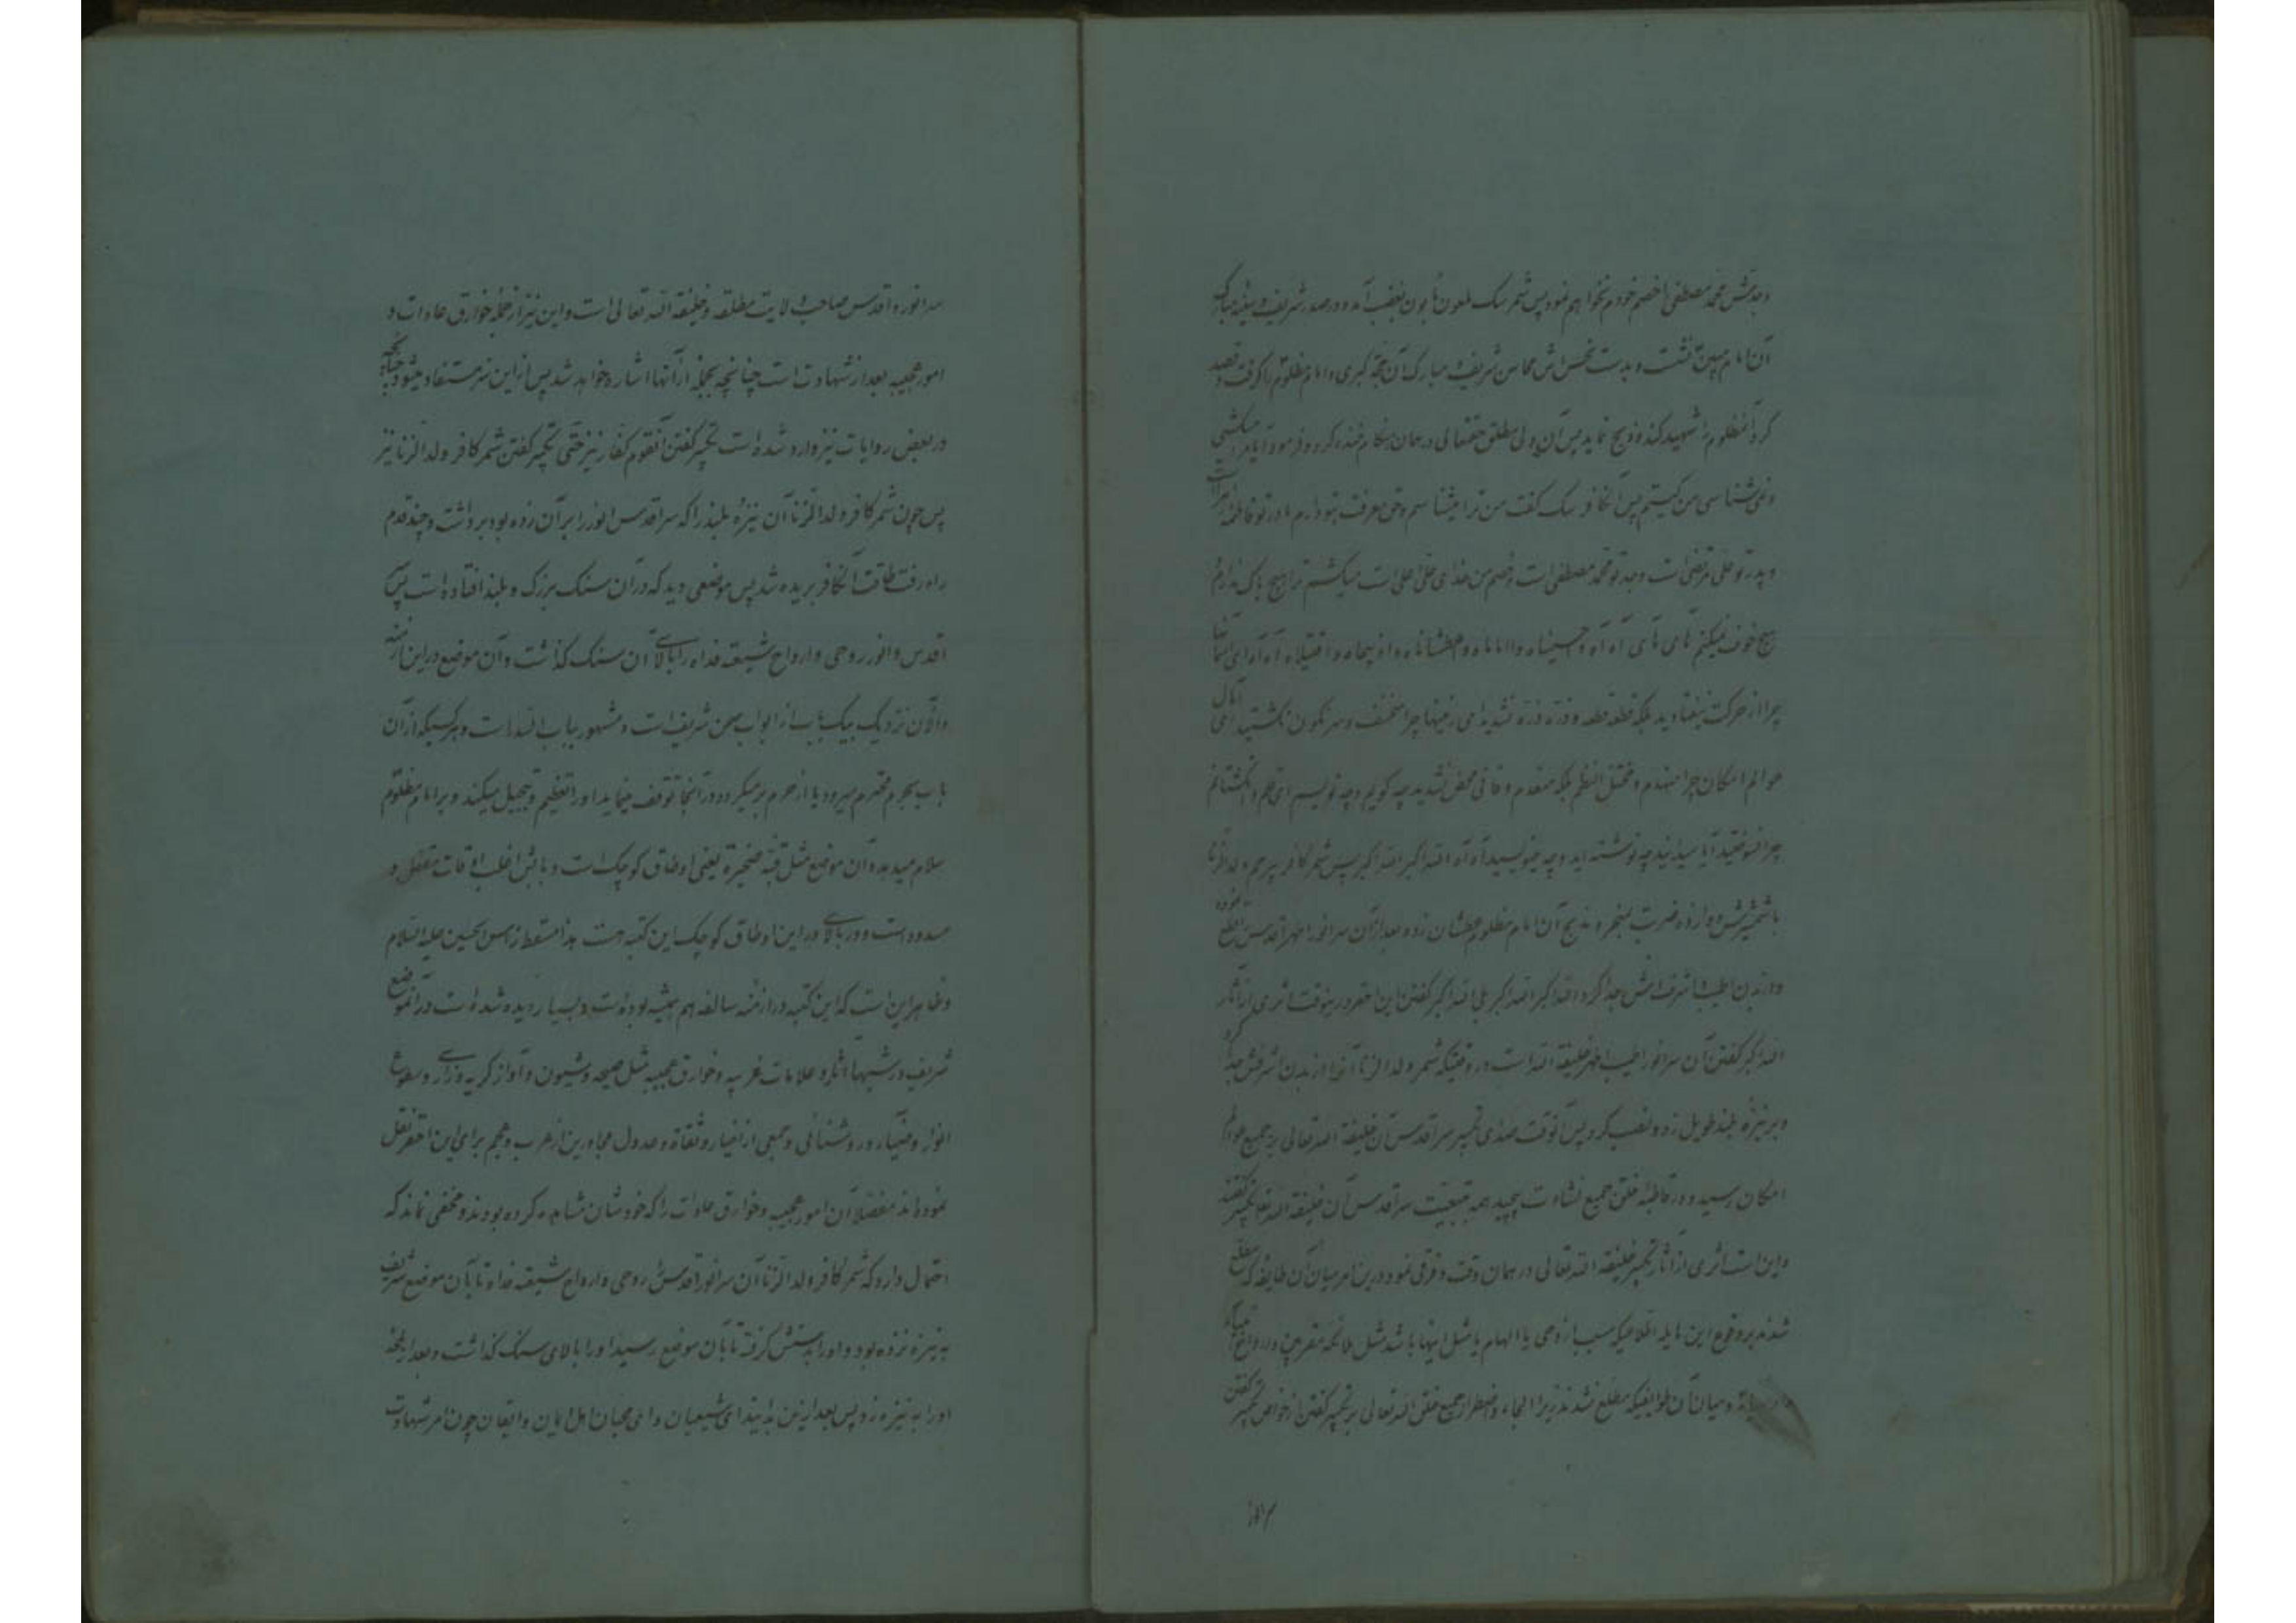 وجدش محمد مصطفی خصم خودم نخواهم نمود پس شمر سک ملعون بغضب آمد و در صدر شریف و سینه مبارک
آن امام مبین نشست و بدست نحسش محاسن شریف مبارک آن حجة کبری و امام مظلوم را کرفت و قصد
کرد آنمظلوم را شهید کند و ذبح نماید پس آن ولی مطلق حقتعالی در همان هنکام خنده کرد و فرمود آیا مرا میکشی
و نمی شناسی من کیستم پس آنکافر سک کفت من ترا میشناسم و حق معرفت بتو دارم مادر تو فاطمه زهرا است
و پدر تو علی مرتضی است و جد تو محمد مصطفی است و خصم من خدای علی اعلی است میکشم ترا هیچ باک ندارم
هیچ خوف نمیکنم های های آه آه وا حسیناه وا اماماه وا عطشاناه وا ذبیحاه وا قتیلاه آه آه ای آسمانها
چرا از حرکت نیفتادید بلکه قطعه قطعه و ذره ذره نشدید ای زمینها چرا منخسف و سرنکون نکشتید ای اهل
عوالم امکان چرا منهدم و مختل النظم بلکه منعدم و فانی محض نشدید چه کویم و چه نویسم ای قلم و انکشتانم
چرا نسوختید آیا میدانید چه نوشته اید و چه مینویسید آه آه الله اکبر الله اکبر پس شمر کافر بیرحم ولد الزنا
با شمشیرش دوازده ضربت بمنحر و مذبح آن امام مظلوم عطشان زده بعد از آن سر انور اطهر اقدسش قطع نموده
و از بدن اطیب اشرفش جدا کرد الله اکبر الله اکبر بلی الله اکبر کفتن این احقر درینوقت اثری از آثار
الله اکبر کفتن آن سر انور اطیب اطهر خلیفة الله است در وقتیکه شمر ولد الزنا آنرا از بدن اشرفش جدا کرد
و بر نیزه بلند طویل زده و نصب کرد پس آنوقت صدای تکبیر سر اقدس آن خلیفة الله تعالی بر جمیع عوالم
امکان رسید و در قاطبه خلق جمیع نشات پیچید همه بتبعیت سر اقدس آن خلیفة الله تعالی تکبیر کفتند
و این است اثری از آثار تکبیر خلیفة الله تعالی در همان وقت و فرقی نبود درین امر میان آن طایفه که مطلع
شدند بر وقوع این هایله اطلاعیکه بسبب از وحی یا الهام یا مثل اینها باشد مثل ملائکه مقربین و ارواح انبیاء
و میان آن طوایفیکه مطلع نشدند زیرا الجاء و اضطرار جمیع خلق الله تعالی بر تکبیر کفتن از خواص تکبیر کفتن
سر انور
سر انور و اقدس صاحب ولایت مطلقه و خلیفة الله تعالی است و این نیز از جمله خوارق عادات و
امور عجیبه بعد از شهادت است چنانچه بجمله از آنها اشاره خواهد شد پس از این نیز مستفاد میشود چنانچه
در بعض روایات نیز وارد شده است تکبیر کفتن آنقوم کفار نیز حتی تکبیر کفتن شمر کافر ولد الزنا نیز
پس چون شمر کافر ولد الزنا آن نیزه بلند را که سر اقدس انور را بر آن زده بود برداشت و چند قدم
راه رفت طاقت آنکافر بریده شد پس موضعی دید که در آن سنک بزرک و بلند افتاده است پس سر
اقدس و انور روحی و ارواح شیعته فداه را بالای آن سنک کذاشت و آن موضع در این ازمنه
والآن نزدیک بیک باب از ابواب صحن شریف است و مشهور بباب السدر است و هر کسیکه از آن
باب بحرم محترم میرود یا از حرم برمیکردد در آنجا توقف مینماید و او را تعظیم و تبجیل میکند و بر امام مظلوم
سلام میدهد و آن موضع مثل قبه صغیره یعنی اوطاق کوچک است و بابش اغلب اوقات مقفل و
مسدود است و در بالای در این اوطاق کوچک این کتبه هست هذا مسقط راس الحسین علیه السلام
و ظاهر این است که این کتبه در ازمنه سالفه هم همیشه بوده است و بسیار دیده شده است در آنموضع
شریف در شبها آثار و علامات غریبه و خوارق عجیبه مثل صیحه و شیون و آواز کریه و زاری و سطوع
انوار و ضیاء و روشنائی و جمعی از اخیار و ثقاة و عدول مجاورین از عرب و عجم برای این احقر نقل
نموده اند مفصلا آن امور عجیبه و خوارق عادات را که خودشان مشاهده کرده بودند و مخفی نماند که
احتمال دارد که شمر کافر ولد الزنا آن سر انور اقدس را روحی و ارواح شیعته فداه تا بآن موضع شریف
به نیزه نزده بود و او را بدستش کرفته تا بآن موضع رسید او را بالای سنک کذاشت و بعد از لحظه
او را به نیزه زد پس بعد از این بدانید ای شیعیان و ای محبان اهل ایمان و ایقان چون امر شهادت